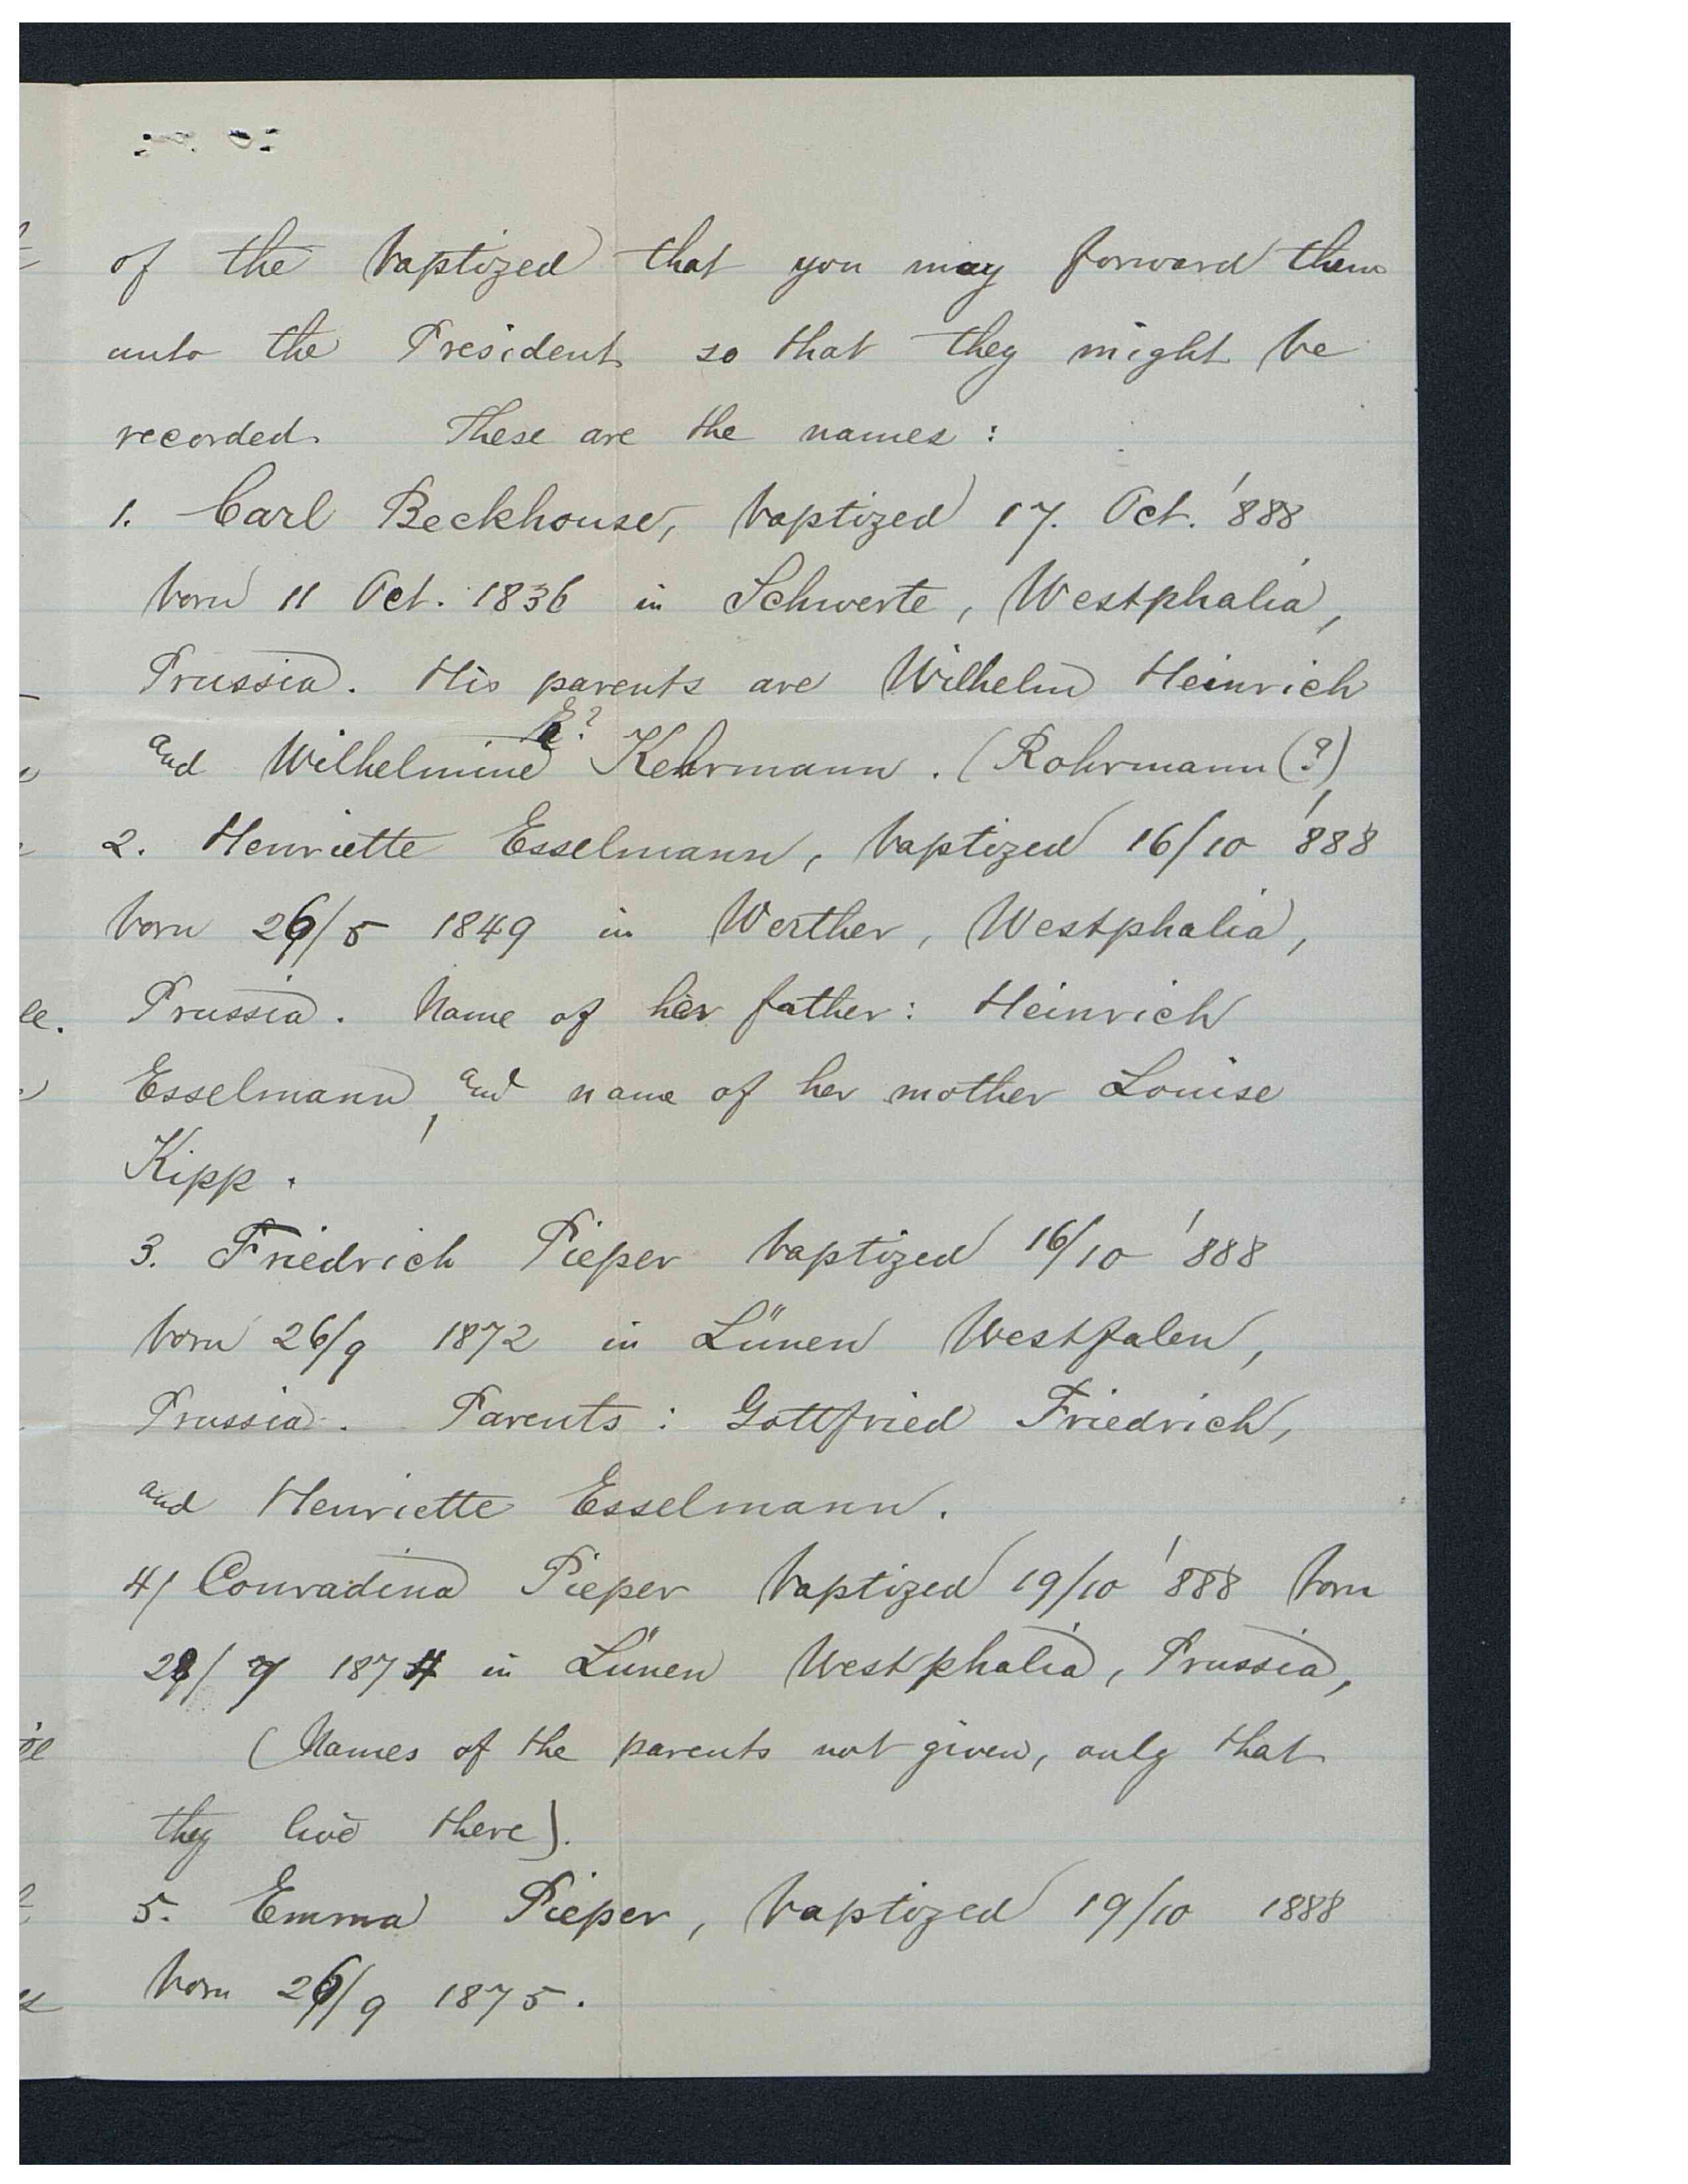 of the baptized that you may forward them
unto the President so that they might be
recorded. These are the names:
1. Carl Beckhouse, baptized 17. Oct. '888
born 11 Oct. 1836 in Schwerte, Westphalia,
Prussia. His parents are Wilhelm Heinrich
E?
and Wilhelmine Kehrmann. (Rohrmann (?)
2. Henriette Esselmann, baptized 16/10 '888
born 26/5 1849 in Werther, Westphalia,
Prussia. Name of her father: Heinrich
Esselmann, and name of her mother Louise
Kipp.
3. Friedrich Pieper baptized 16/10 '888
born 26/9 1872 in Lünen Westfalen,
Prussia. Parents: Gottfried Friedrich,
and Henriette Esselmann.
4/ Conradina Pieper baptized 19/10 '888 born
28/7 1874 in Lünen Westphalia, Prussia,
(Names of the parents not given, only that
they live there).
5. Emma Pieper, baptized 19/10 1888
born 26/9 1875.